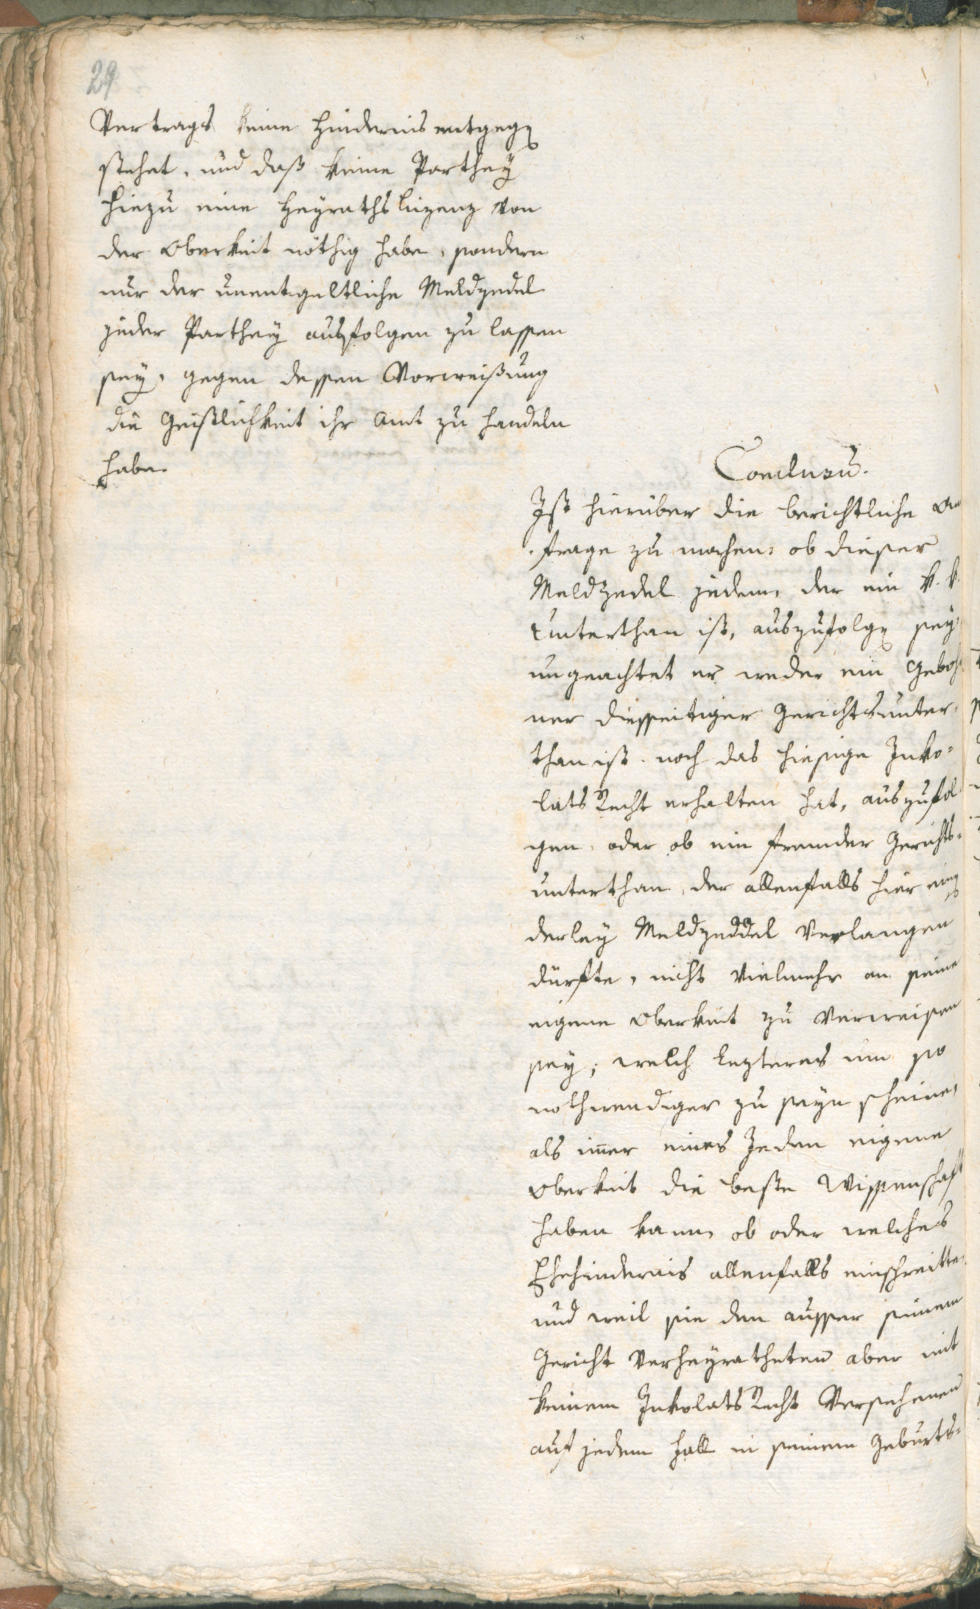 29
Vertrags keine Hindernis entgegen
stehet, und daß keine Parthey
hiezu eine Heyraths Lizenz von
der Oberkeit nöthig habe, sondern
nur der unentgeltliche Meldzedel
jeder Parthey ausfolgen zu lassen
sey, gegen dessen Vorweißung
die Geistlichkeit ihr Amt zu handeln
habe.
Conclusu.
Ist hierüber die berichtliche An
frage zu machen: ob dieser
Meldzedel jedem, der ein k. k.
Unterthan ist, auszufolgen sey,
ungeachtet er weder ein geboh
ner diesseitiger Gerichtsunter-
than ist, noch das hiesige Inko-
lats Recht erhalten hat, auszufol
gen, oder ob ein fremder Gerichts-
unterthan, der allenfalls hier einen
derley Meldzeddel verlangen
dürfte, nicht vielmehr an seine
eigene Oberkeit zu verweisen
sey; welch lezteres um so
nothwendiger zu seyn scheine,
als immer eines Jeden eigene
Oberkeit die beste Wissenschaft
haben kann, ob oder welches
Ehehindernis allenfalls einschreitte,
und weil sie den ausser seinem
Gericht verheyratheten aber mit
keinem Inkolats Recht Versehenen
auf jedem Fall in seinem Geburts-